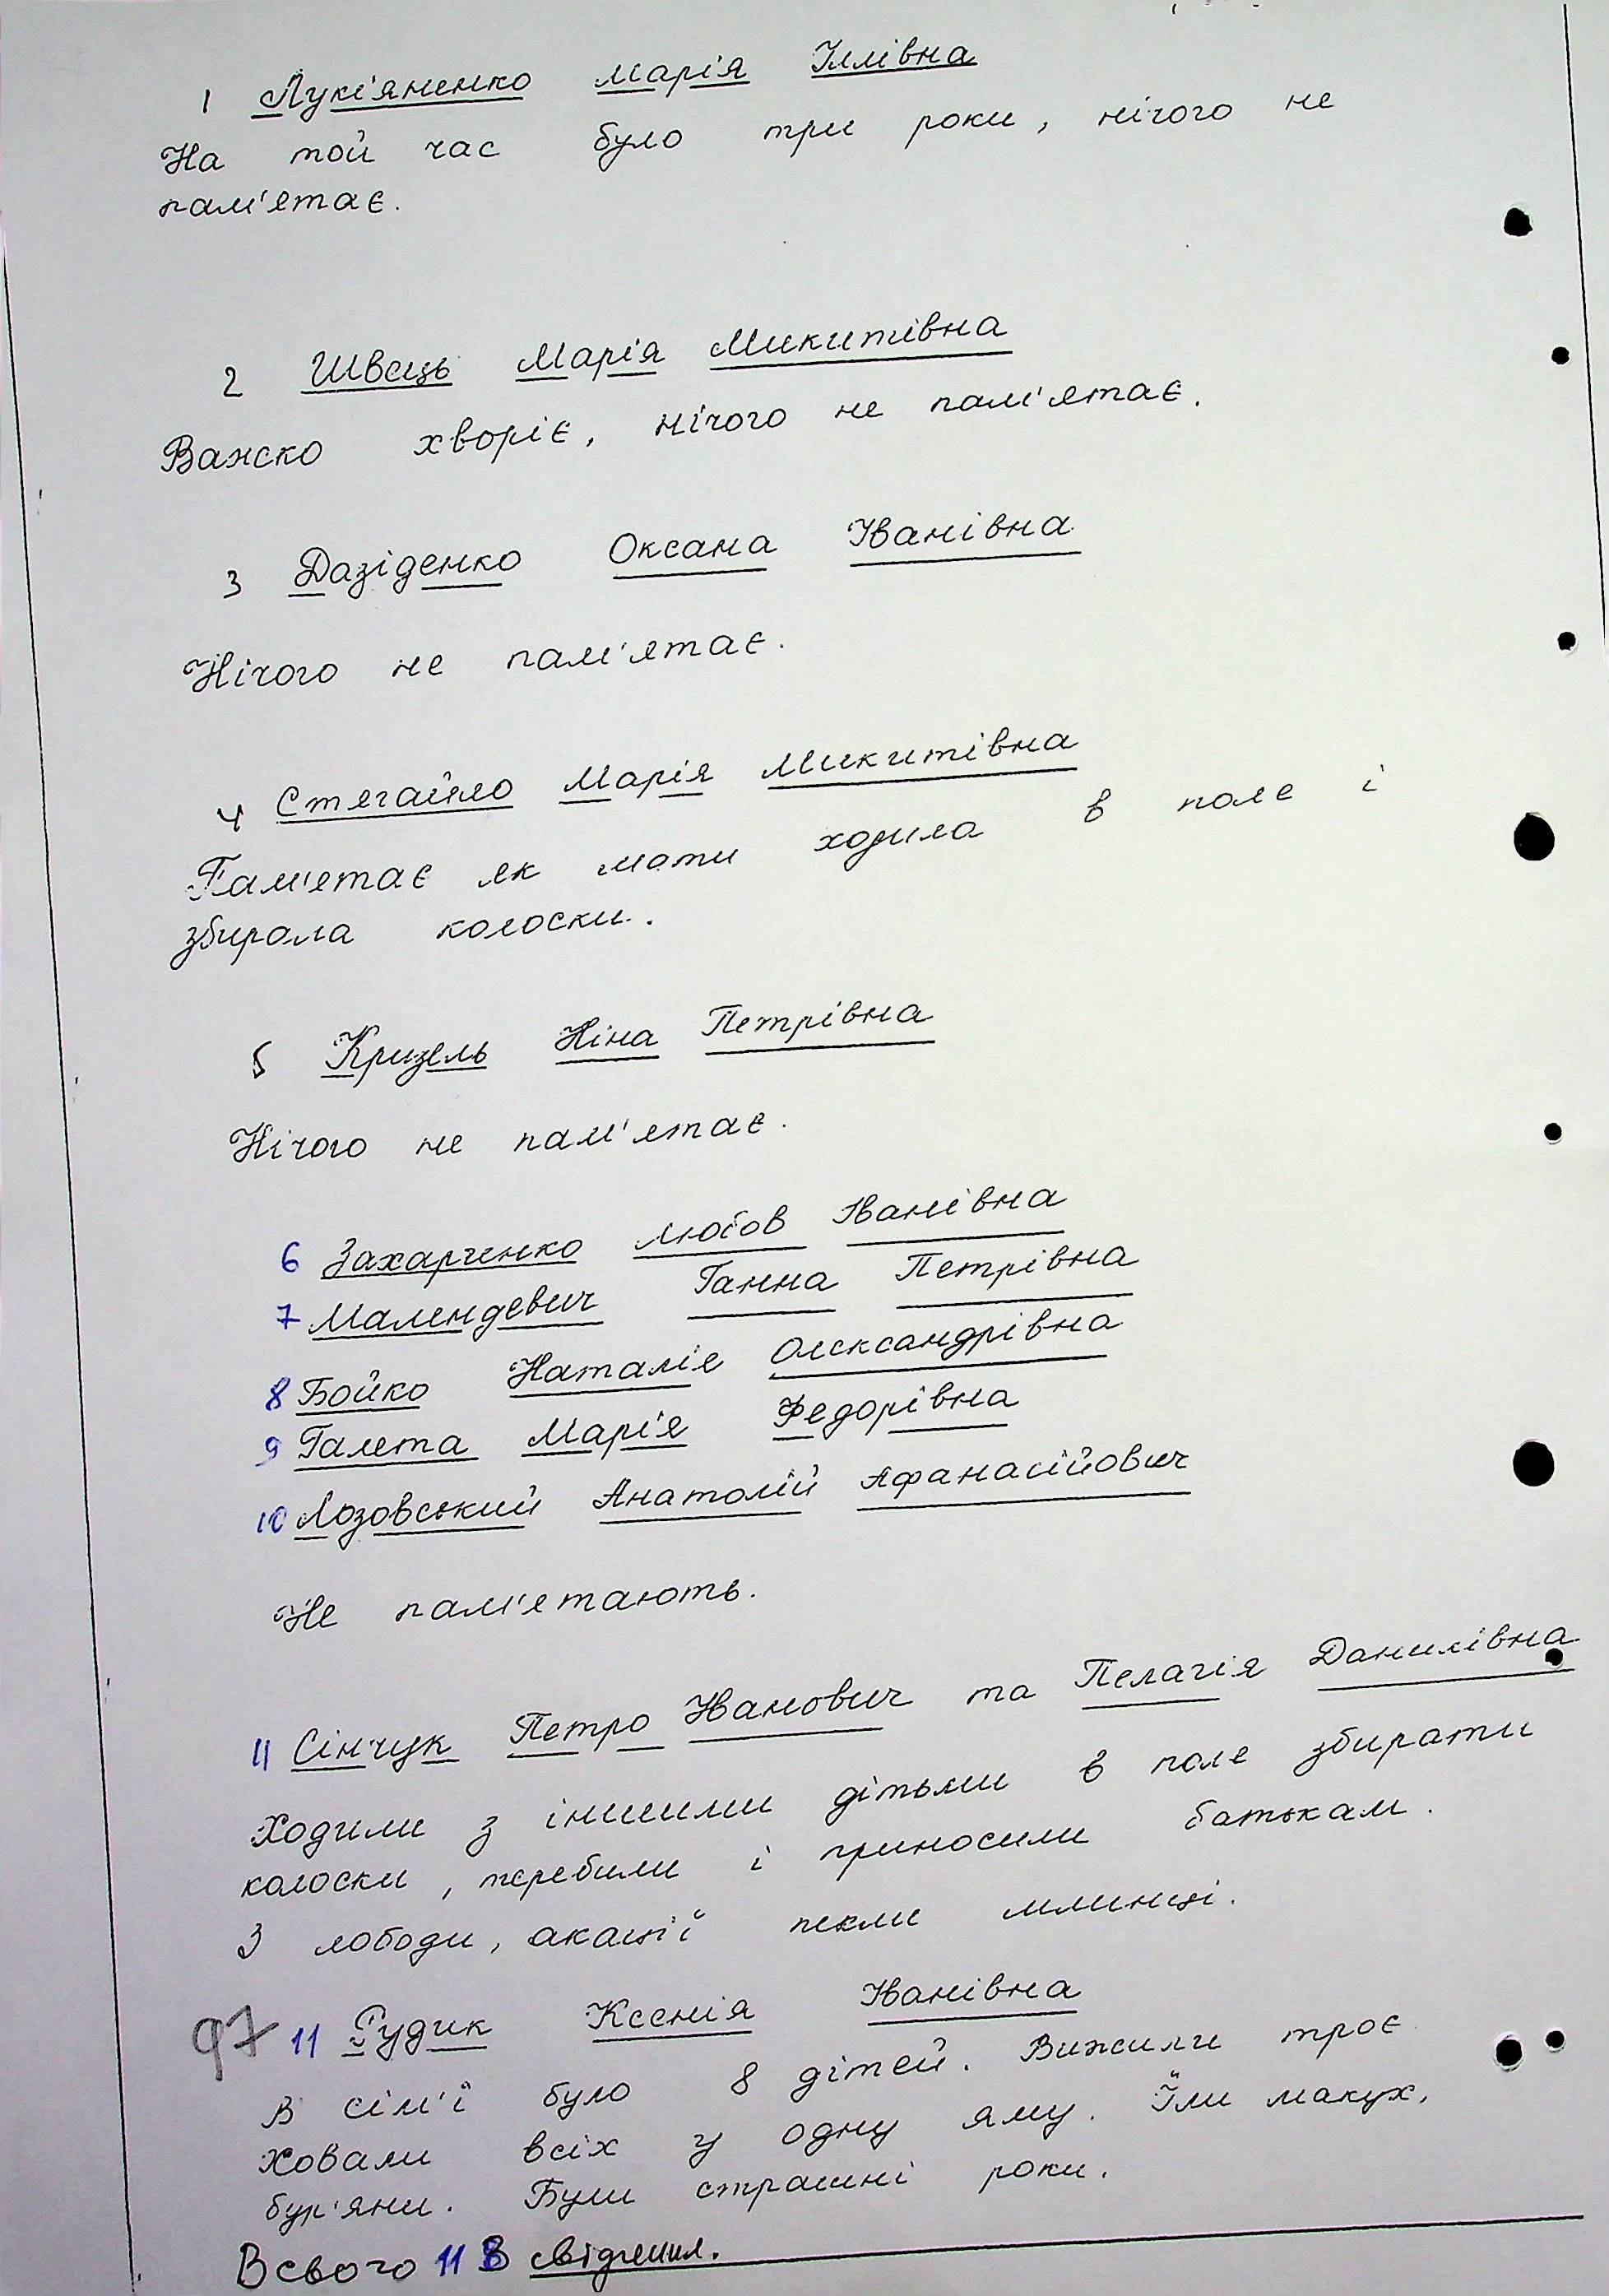 1 Лук'яненко Марія Іллівна
На той час було три роки, нічого не
пам'ятає.
2 Швець Марія Микитівна
Важко хворіє, нічого не пам'ятає.
3 Дазіденко Оксана Іванівна
Нічого не пам'ятає.
4 Стягайло Марія Микитівна
Пам'ятає як мати ходила в поле і
збирала колоски.
5 Кризель Ніна Петрівна
Нічого не пам'ятає.
6 Захарченко Любов Іванівна
7 Малендевич Ганна Петрівна
8 Бойко Наталія Олександрівна
9 Галета Марія Федорівна
10 Лозовський Анатолій Афанасійович
Не пам'ятають.
11 Сінчук Петро Іванович та Пелагія Данилівна
Ходили з іншими дітьми в поле збирати
колоски, теребили і приносили батькам.
З лободи, акації пекли млинці.
97 11 Рудик Ксенія Іванівна
В сім'ї було 8 дітей. Вижили троє
Ховали всіх у одну яму. Їли макух,
бур'яни. Були страшні роки.
Всього 118 свідчення.